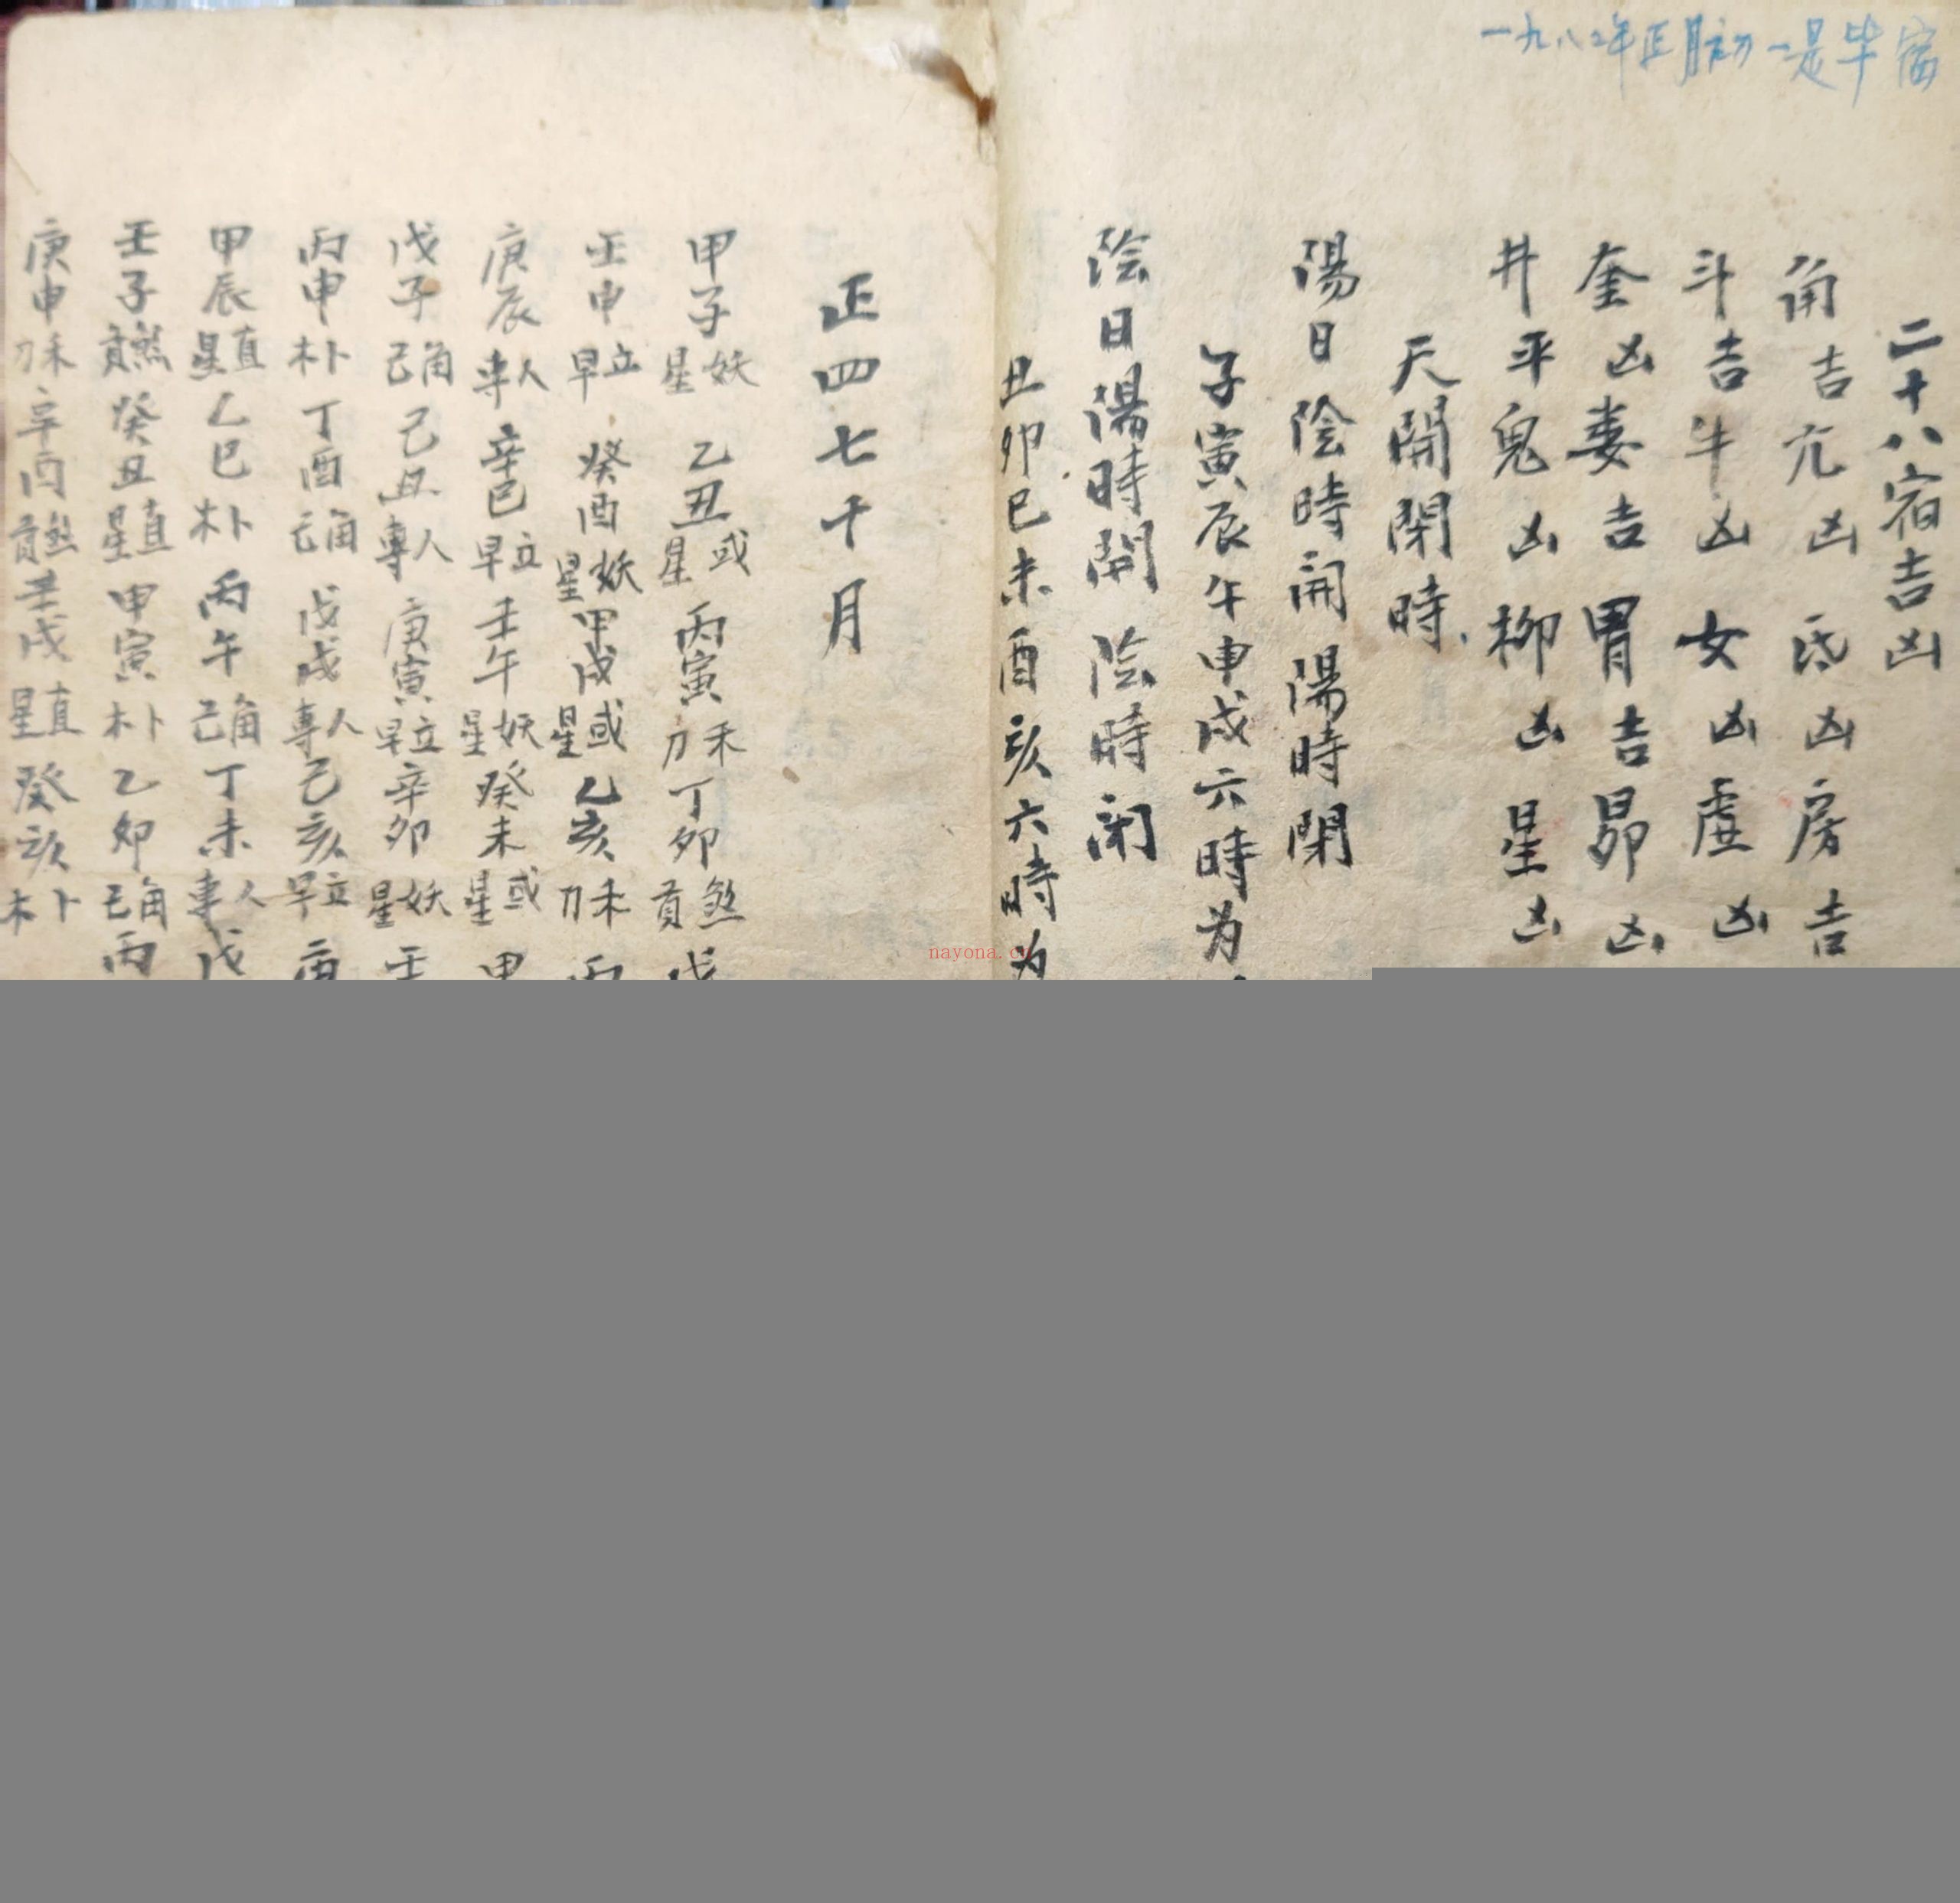 一九八二年正月初一是毕宿
二十八宿吉凶
角吉亢凶氐凶房吉
斗吉牛凶女凶虚凶
奎凶娄吉胃吉昴凶
井平鬼凶柳凶星凶
天開閉時
陽日陰時開陽時閉
子寅辰午申戌六時为
陰日陽時開陰時闭
丑卯巳未酉亥六時为
正四七十月
甲子妖星乙丑或星丙寅禾刀丁卯煞貢戊
壬申立早癸酉妖星甲戌或星乙亥禾刀丙
庚辰人專辛巳立早壬午妖星癸未或星甲
戊子角己己丑人專庚寅立早辛卯妖星壬
丙申卜木丁酉角己戊戌人專己亥立早庚
甲辰直星乙巳卜木丙午角己丁未人專戊
壬子煞貢癸丑直星甲寅卜木乙卯角己丙
庚申禾刀辛酉煞貢壬戌直星癸亥卜木
nayona.cn